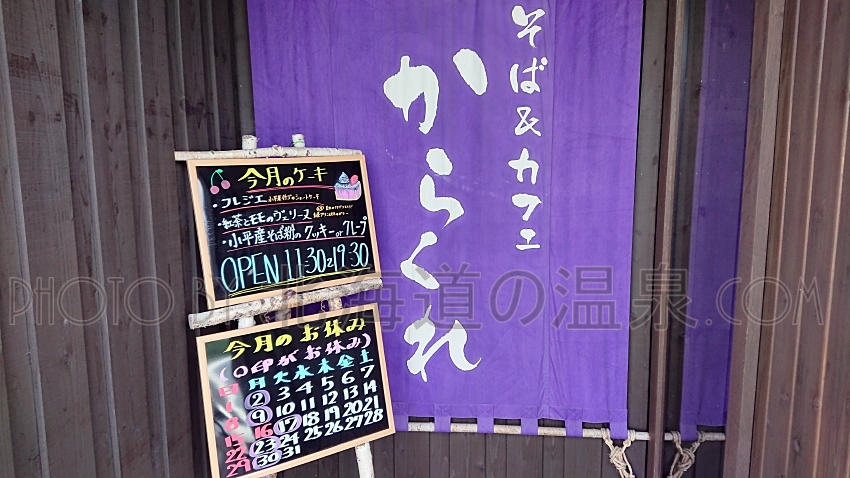 そば&カフェ
からくれ
今月のケーキ
・フレジエ
・紅茶とモモのヴェリーヌ
・小平産そば粉のクッキーorクレープ
OPEN 11:30~19:30
今月のお休み
(○印がお休み)
日 月 火 水 木 金 土
1 2 3 4 5 6 7
8 9 10 11 12 13 14
15 16 17 18 19 20 21
22 23 24 25 26 27 28
29 30 31
PHOTO BY 北海道の温泉.com